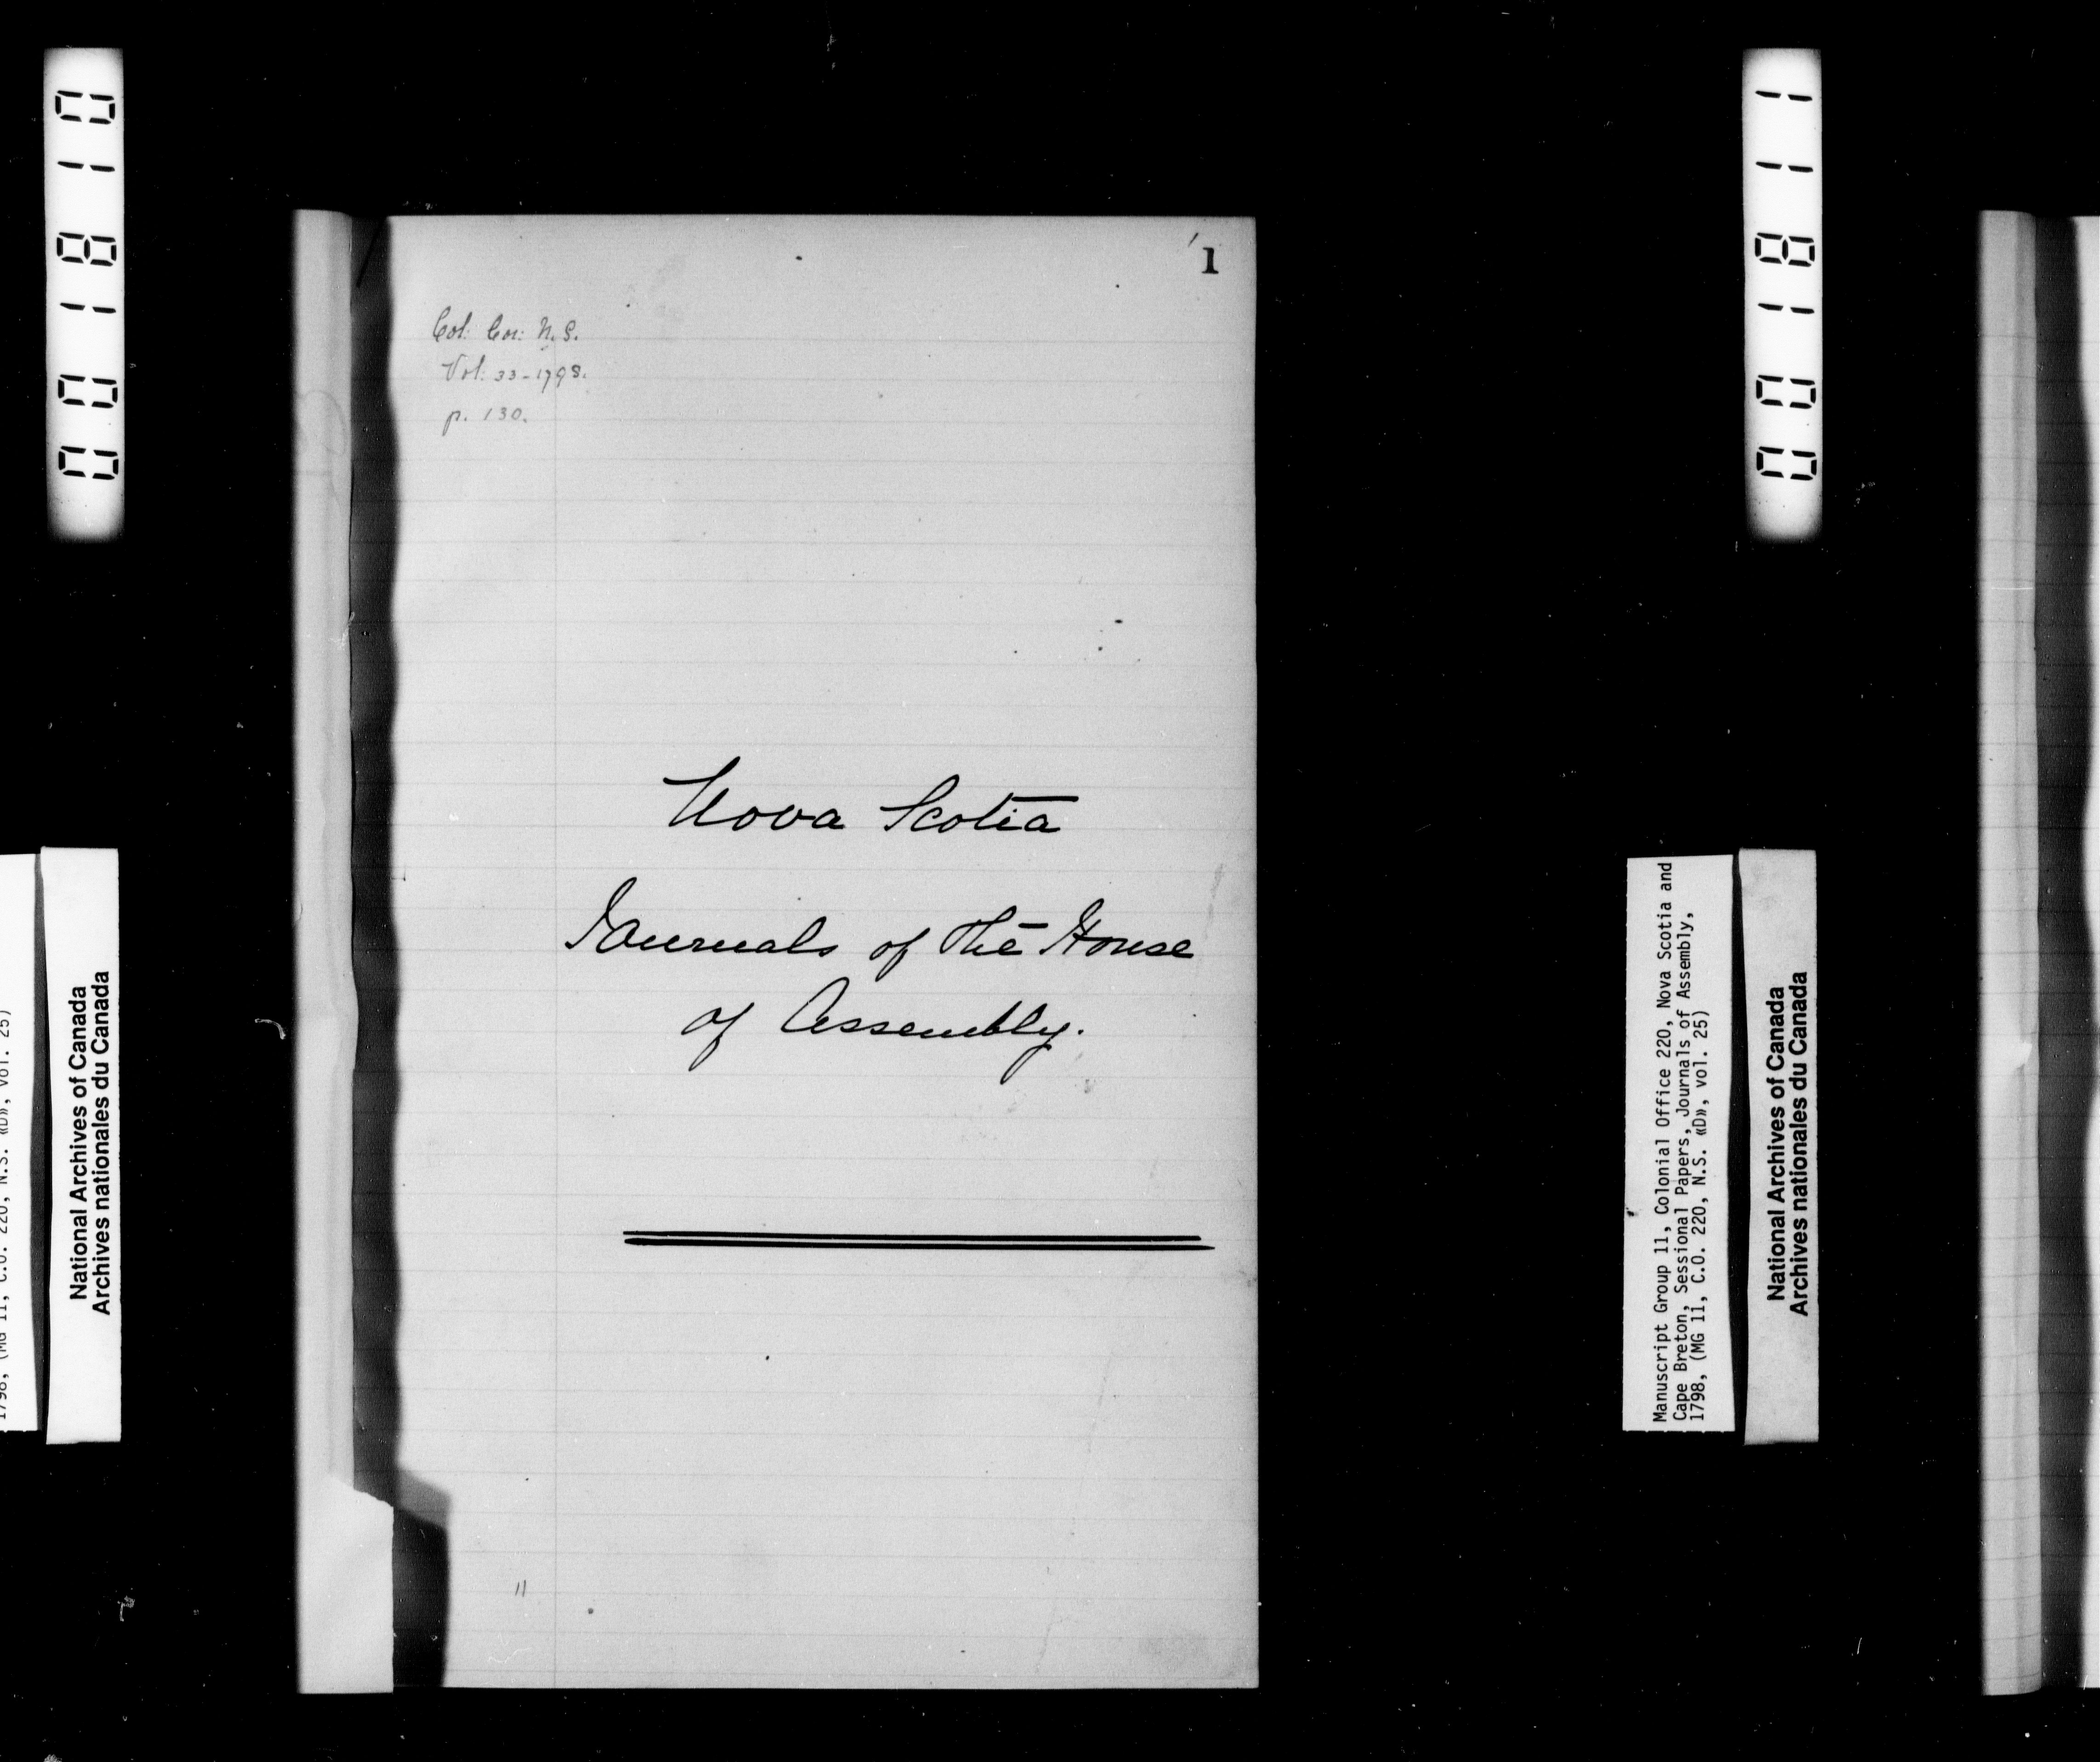 001810
1798, (MG 11, C.O. 220, N.S. «D», vol. 25)
National Archives of Canada
Archives nationales du Canada
1
Col: Cor: N.S.
Vol: 33-1798.
p. 130.
Nova Scotia
Journals of the House
of Assembly.
11
001811
Manuscript Group 11, Colonial Office 220, Nova Scotia and
Cape Breton, Sessional Papers, Journals of Assembly,
1798, (MG 11, C.O. 220, N.S. «D», vol. 25)
National Archives of Canada
Archives nationales du Canada